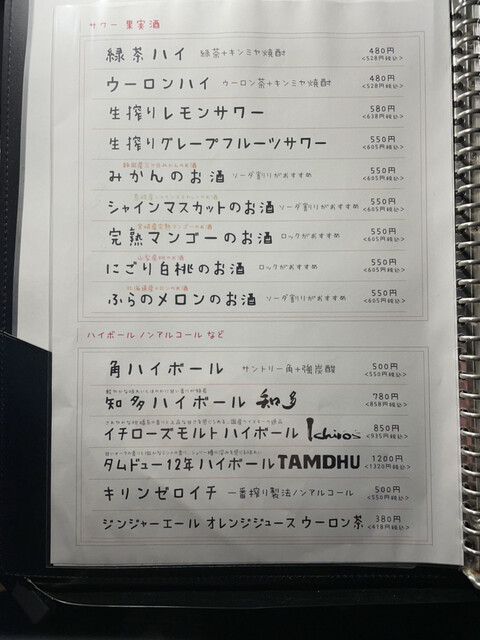 サワー 果実酒
緑茶ハイ 緑茶+キンミヤ焼酎 480円
<528円税込>
ウーロンハイ ウーロン茶+キンミヤ焼酎 480円
<528円税込>
生搾りレモンサワー 580円
<638円税込>
生搾りグレープフルーツサワー 550円
<605円税込>
みかんのお酒 ソーダ割りがおすすめ 550円
<605円税込>
シャインマスカットのお酒 ソーダ割りがおすすめ 550円
<605円税込>
宮崎産完熟マンゴーのお酒
完熟マンゴーのお酒 ロックがおすすめ 550円
<605円税込>
山梨産桃のお酒
にごり白桃のお酒 ロックがおすすめ 550円
<605円税込>
北海道産メロンのお酒
ふらのメロンのお酒 ソーダ割りがおすすめ 550円
<605円税込>
ハイボール ノンアルコール など
角ハイボール サントリー角+強炭酸 500円
<550円税込>
知多ハイボール 知多 780円
<858円税込>
イチローズモルトハイボール Ichiro's 850円
<935円税込>
タムドゥー12年ハイボール TAMDHU 1200円
<1320円税込>
キリンゼロイチ 一番搾り製法ノンアルコール 500円
<550円税込>
ジンジャーエール オレンジジュース ウーロン茶 380円
<418円税込>